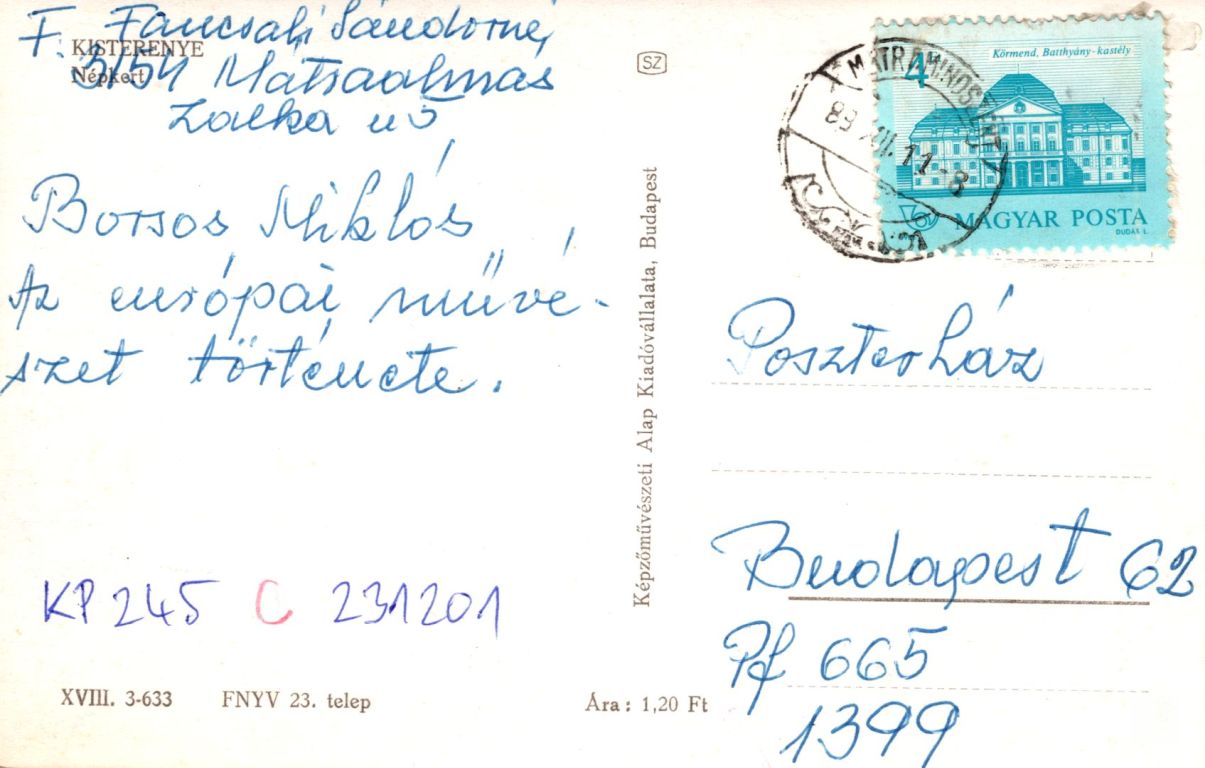 F. Fancsali Sándorné,
KISTERENYE
Népkert
3154 Mátraalmás
Zalka u 5
Borsos Miklós
Az európai művé-
szet története.
KP 245 C 231201
XVIII. 3-633 FNYV 23. telep
Ára: 1,20 Ft
SZ
Képzőművészeti Alap Kiadóvállalata, Budapest
MÁTRAMINDSZENT
89 11-8
4
Körmend, Batthyány-kastély
MAGYAR POSTA
DUDÁS L.
Poszterház
Budapest 62
Pf 665
1399